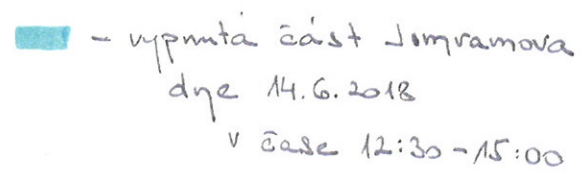 - vypnutá část Jimramova
dne 14.6.2018
v čase 12:30-15:00